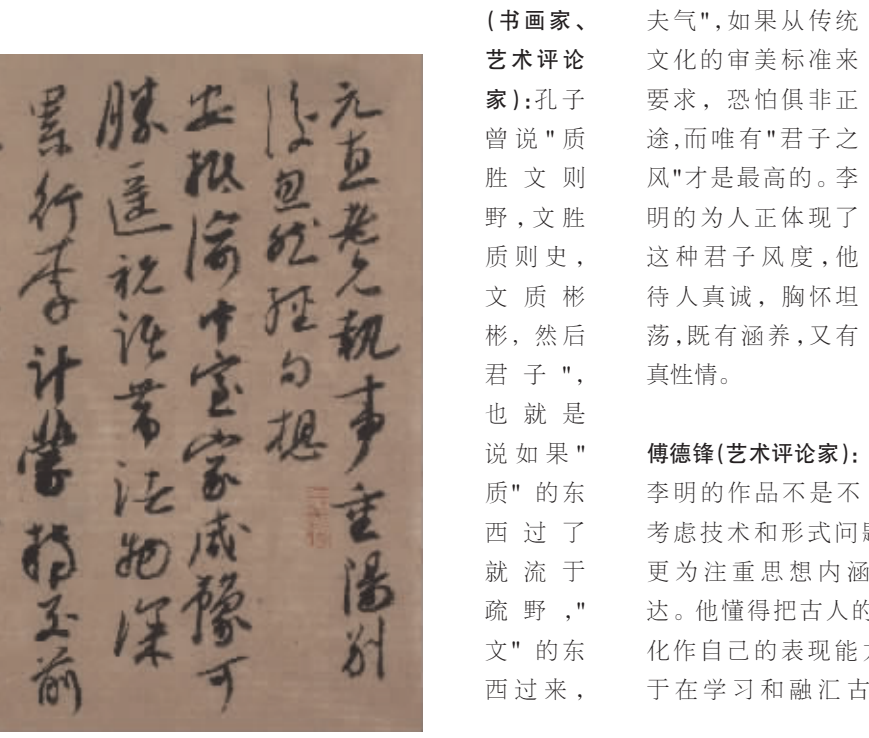 元直老兄執事重陽别
後忽然經旬想
安抵渝中室家咸豫可
勝遥祝 物深
累行李计蒙擲至前
(书画家、
艺术评论
家):孔子
曾说"质
胜文则
野,文胜
质则史,
文质彬
彬,然后
君子",
也就是
说如果"
质"的东
西过了
就流于
疏野,"
文"的东
西过来,
夫气",如果从传统
文化的审美标准来
要求,恐怕俱非正
途,而唯有"君子之
风"才是最高的。李
明的为人正体现了
这种君子风度,他
待人真诚,胸怀坦
荡,既有涵养,又有
真性情。
傅德锋(艺术评论家):
李明的作品不是不
考虑技术和形式问题
更为注重思想内涵
达。他懂得把古人的
化作自己的表现能力
于在学习和融汇古